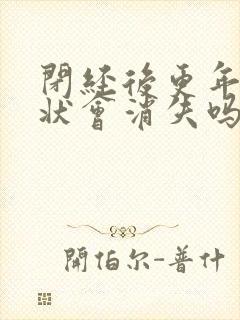 閉經後更年
狀會消失吗
開伯尔-普什